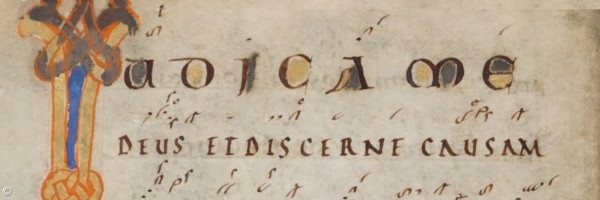 IUDICA ME
DEUS ET DISCERNE CAUSAM